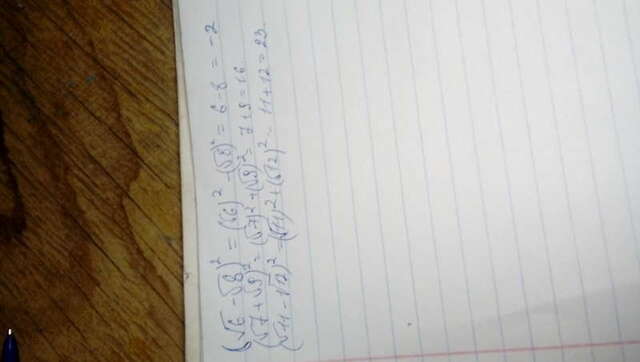 (√6 - √8)² = (√6)² - (√8)² = 6 - 8 = -2
(√7 + √9)² = (√7)² + (√9)² = 7 + 9 = 16
(√11 - √12)² = (√11)² + (√12)² = 11 + 12 = 23